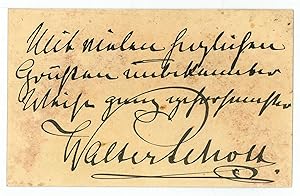 Mit vielen herzlichen
Grüßen unbekannter
Weise ganz gehorsamster
Walter Schott